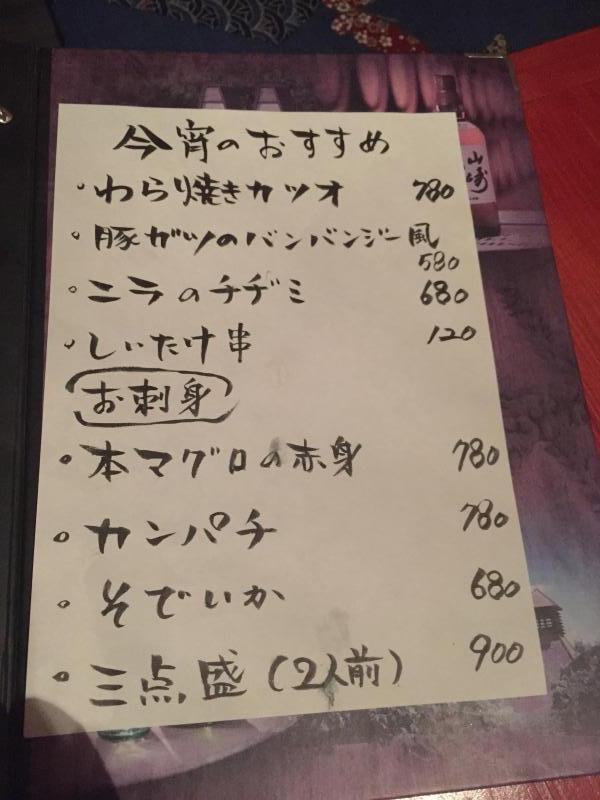 今宵のおすすめ
・わら焼きカツオ 780
・豚ガツのバンバンジー風
580
・ニラのチヂミ 680
・しいたけ串 120
お刺身
・本マグロの赤身 780
・カンパチ 780
・そでいか 680
・三点盛(2人前) 900
山崎